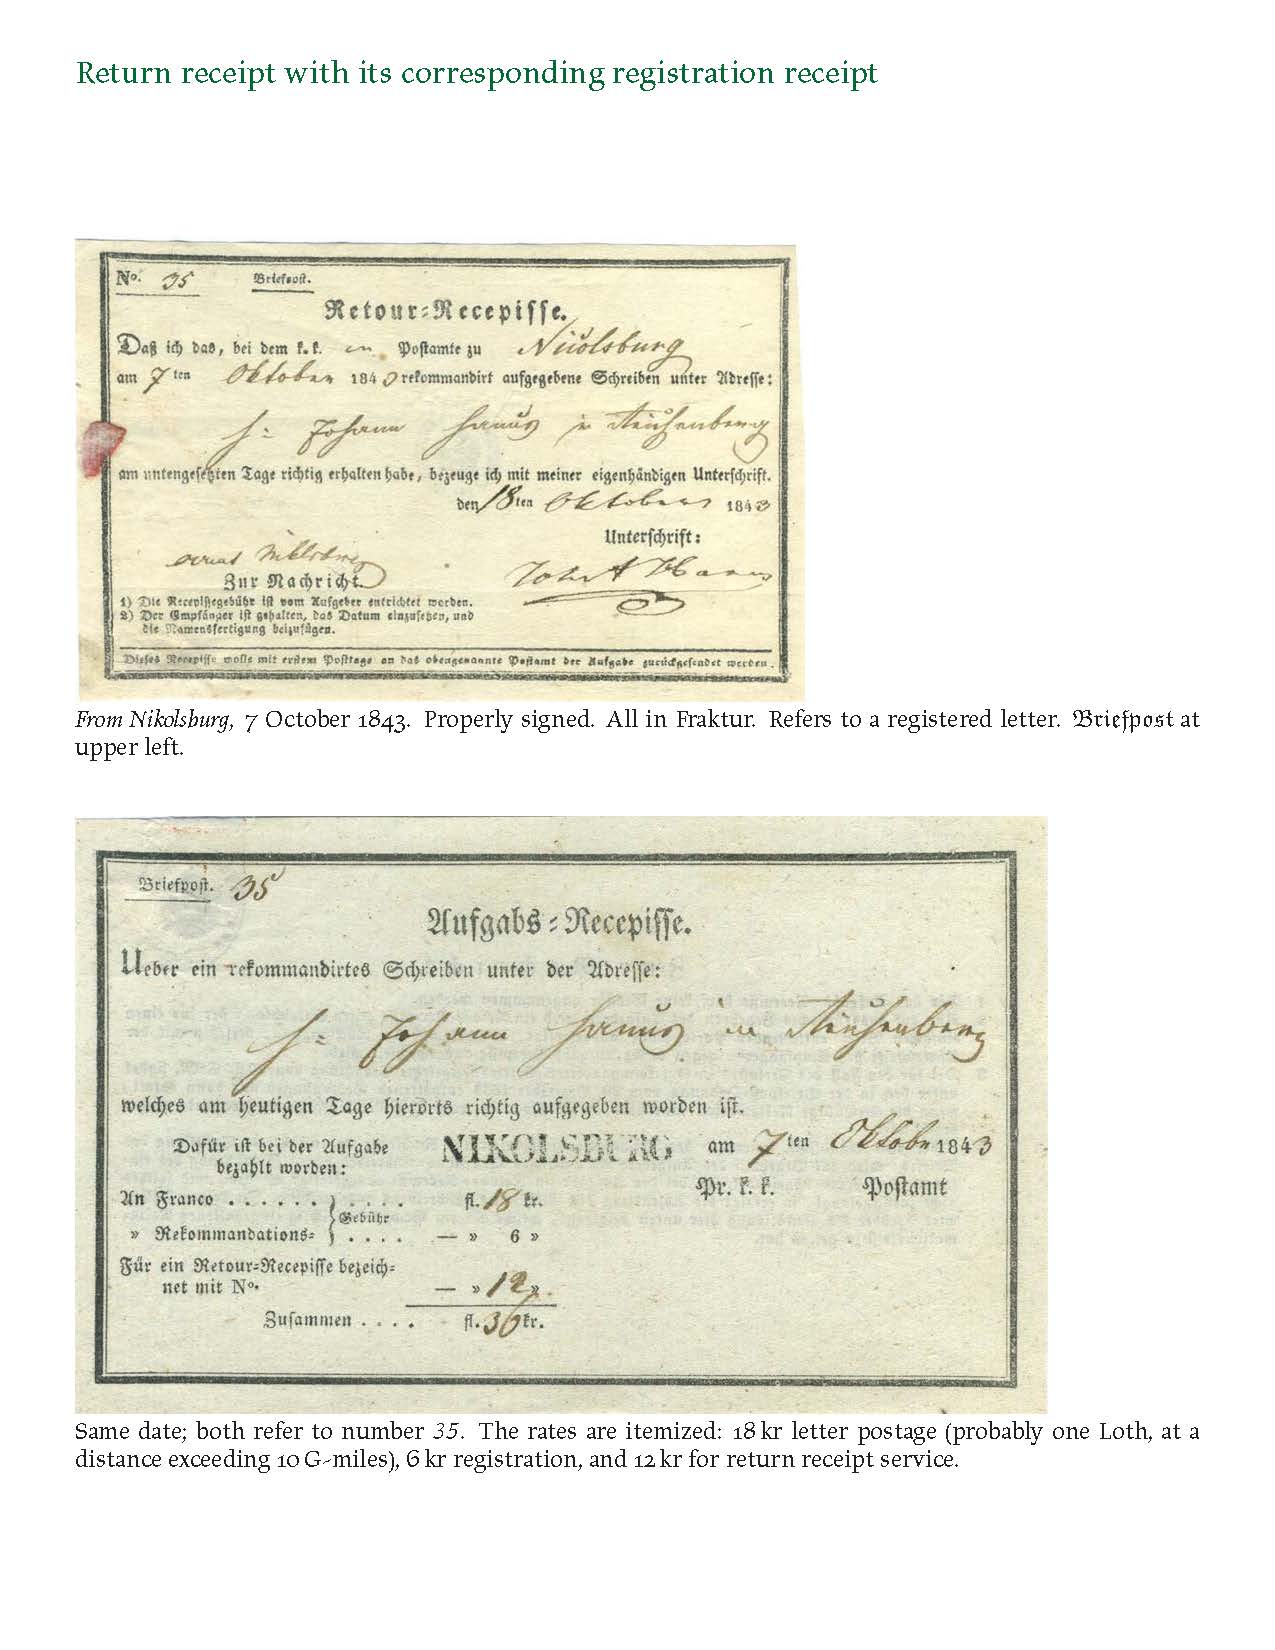 Return receipt with its corresponding registration receipt
No. 35 Briefpost.
Retour=Recepisse.
Daß ich das, bei dem k. k. Postamte zu Nicolsburg
am 7ten Oktober 1843 rekommandirt aufgegebene Schreiben unter Adresse:
H: Johann Hanus in Reichenberg
am untengesetzten Tage richtig erhalten habe, bezeuge ich mit meiner eigenhändigen Unterschrift.
den 18ten Oktober 1843
Unterschrift:
Zur Nachricht.
1) Die Recepissegebühr ist vom Aufgeber entrichtet worden.
2) Der Empfänger ist gehalten, das Datum einzusetzen, und
die Namensfertigung beizufügen.
Dieses Recepisse wolle mit erstem Posttage an das obengenannte Postamt der Aufgabe zurückgesendet werden.
From Nikolsburg, 7 October 1843. Properly signed. All in Fraktur. Refers to a registered letter. Briefpost at
upper left.
Briefpost. 35
Aufgabs=Recepisse.
Ueber ein rekommandirtes Schreiben unter der Adresse:
H: Johann Hanus in Reichenberg
welches am heutigen Tage hierorts richtig aufgegeben worden ist.
Dafür ist bei der Aufgabe bezahlt worden:
NIKOLSBURG am 7ten Oktober 1843
Pr. k. k. Postamt
An Franco . . . . . . } . . . . fl. 18 kr.
Gebühr
» Rekommandations= } . . . . — » 6 »
Für ein Retour=Recepisse bezeich=
net mit No. — » 12 ».
Zusammen . . . . fl. 36 kr.
Same date; both refer to number 35. The rates are itemized: 18 kr letter postage (probably one Loth, at a
distance exceeding 10 G-miles), 6 kr registration, and 12 kr for return receipt service.